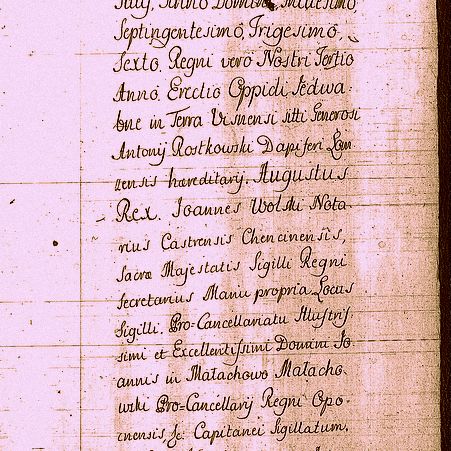 July, Anno Domini, Millesimo
Septingentesimo, Trigesimo,
Sexto. Regni vero Nostri Tertio
Anno. Erectio Oppidi Jedwa-
bne in Terra Visnensi siti Generosi
Antonij Rostkowski Dapiferi Lom-
zensis hæreditarij. Augustus
Rex. Joannes Wolski Nota-
rius Castrensis Chencinensis,
Sacræ Majestatis Sigilli Regni
Secretarius Manu propria. Locus
Sigilli. Pro-Cancellariatu Illustris-
simi et Excellentissimi Domini Jo-
annis in Małachowo Małacho-
wski Pro-Cancellarij Regni Opo-
cnensis, &c. Capitanei Sigillatum.